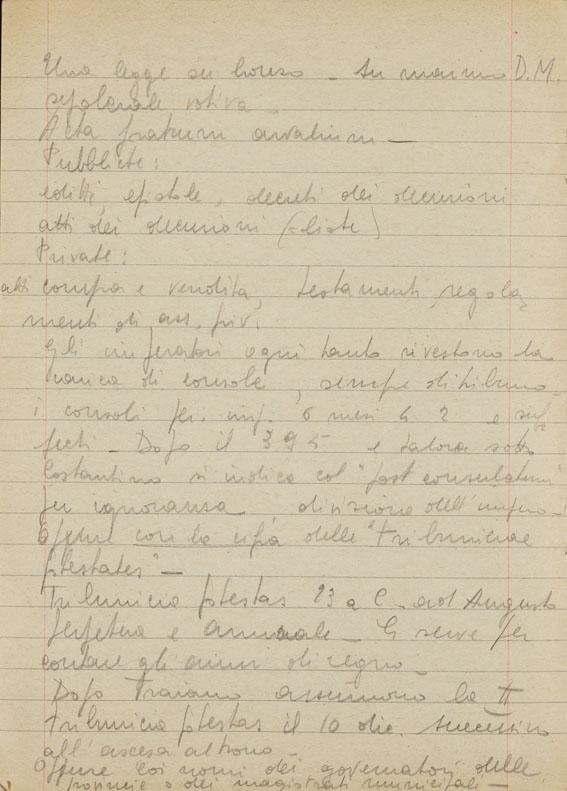 Una legge su bronzo - In marmo D.M.
sepolcrale votiva
Acta fratrum arvalium -
Pubbliche:
editti, epistole, decreti dei decurioni
atti dei decurioni (liste)
Private:
atti compra e vendita, testamenti, regola
menti di ass. priv.
Gli imperatori ogni tanto rivestono la
carica di console, sempre di tribuno
i consoli per. imp. 6 mesi 4 2 e suf
fecti - Dopo il 395 e talora sotto
Costantino si indica col "post consulatum"
per ignoranza divisione dell'impero -
Oppure con la cifra delle "Tribuniciae
ptestates" -
Tribunicia ptestas 23 a C - ad Augusto
perpetua e annuale - E serve per
contare gli anni di regno
Dopo Traiano assumono la II
Tribunicia ptestas il 10 dic. successivo
all'ascesa al trono -
Oppure coi nomi dei governatori delle
provincie o dei magistrati municipali -